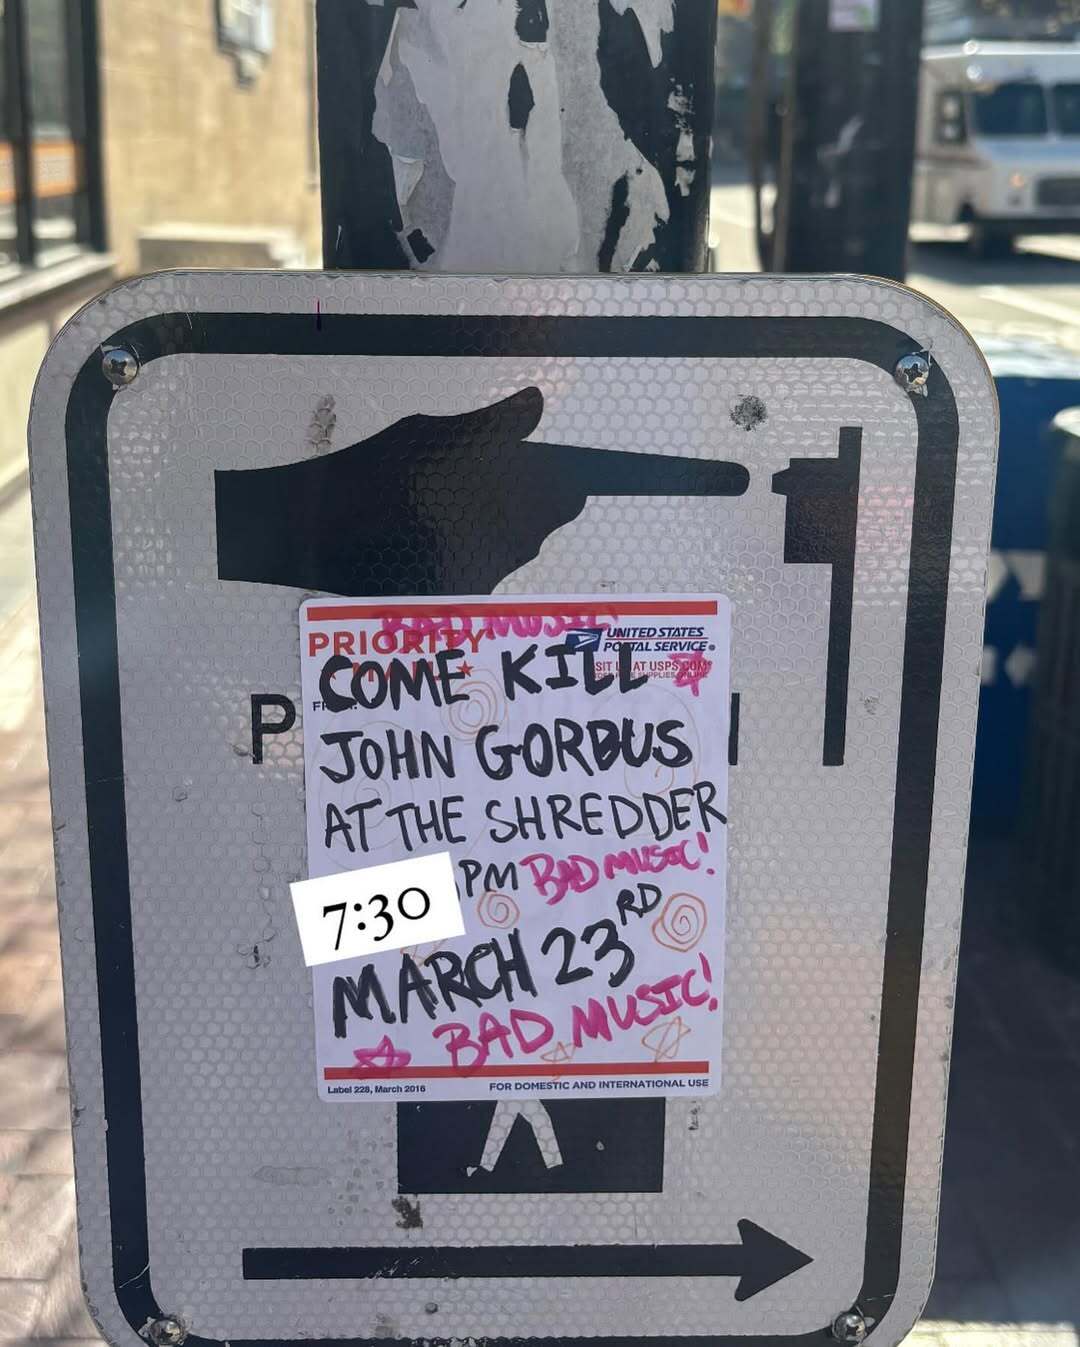 BAD MUSIC!
PRIORITY
UNITED STATES
POSTAL SERVICE
COME KILL
JOHN GORBUS
AT THE SHREDDER
7:30 PM BAD MUSIC!
MARCH 23RD
BAD MUSIC!
Label 228, March 2016
FOR DOMESTIC AND INTERNATIONAL USE
P